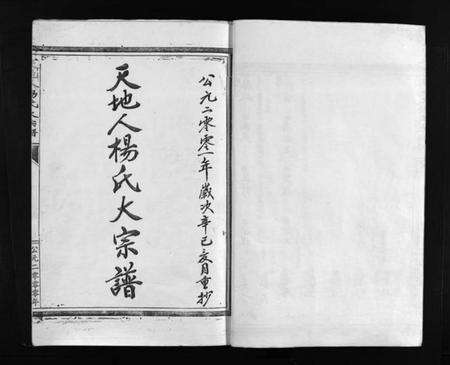 公元二零零一年歲次辛已亥月重抄
天地人楊氏大宗譜